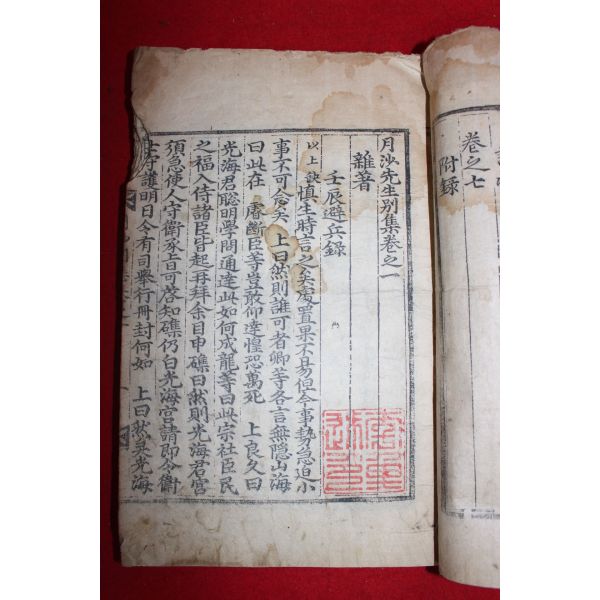 卷之七
附錄
月沙先生別集卷之一
雜著
壬辰避兵錄
以上缺愼生時言之矣處置果不易但今事勢急迫小
事不可念矣 上曰然則誰可者卿等各言無隱山海
曰此在 睿斷臣等豈敢仰達惶恐萬死 上良久曰
光海君聰明學問通達此如何成龍等曰此宗社臣民
之福入侍諸臣皆起再拜余目申磼曰然則光海君宮
須急使人守衛承旨可啓知磼仍白光海宮請卽令衛
士守護明日令有司擧行冊封何如 上曰然矣光海